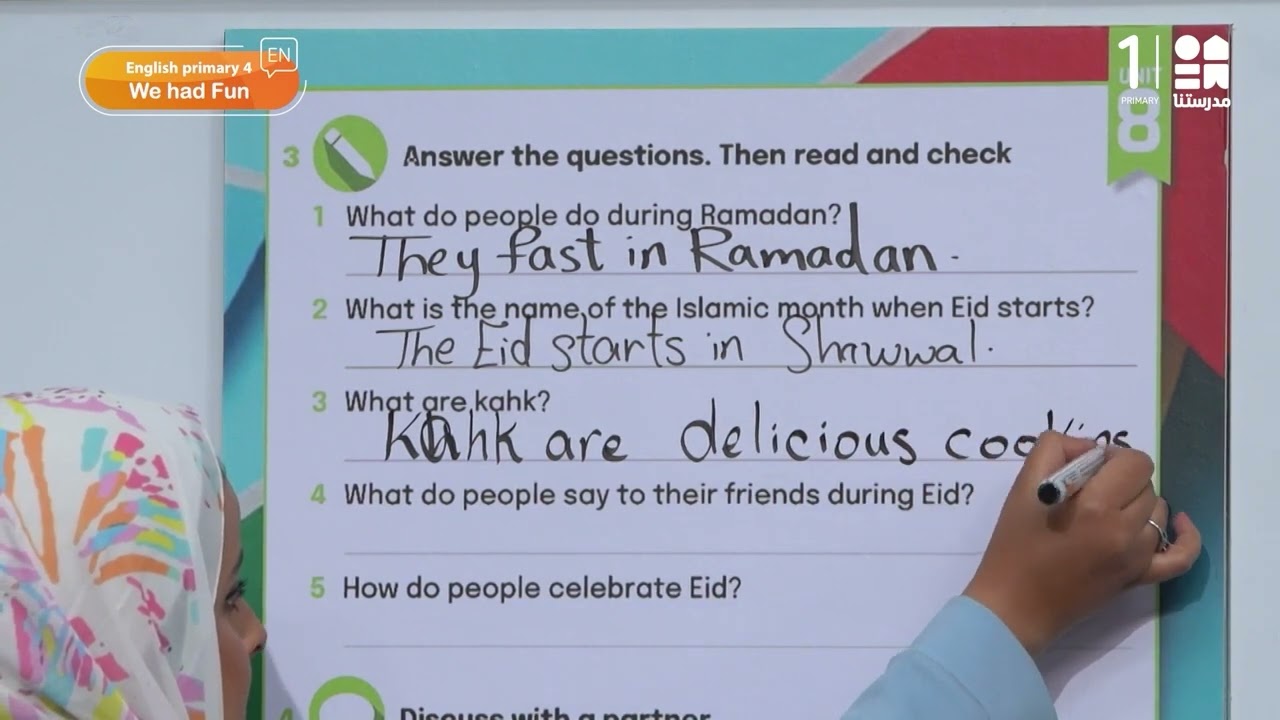 English primary 4
EN
We had Fun
1
PRIMARY
مدرستنا
UNIT
8
3 Answer the questions. Then read and check
1 What do people do during Ramadan?
They fast in Ramadan.
2 What is the name of the Islamic month when Eid starts?
The Eid starts in Shawwal.
3 What are kahk?
Kahk are delicious cookies
4 What do people say to their friends during Eid?
5 How do people celebrate Eid?
4 Discuss with a partner